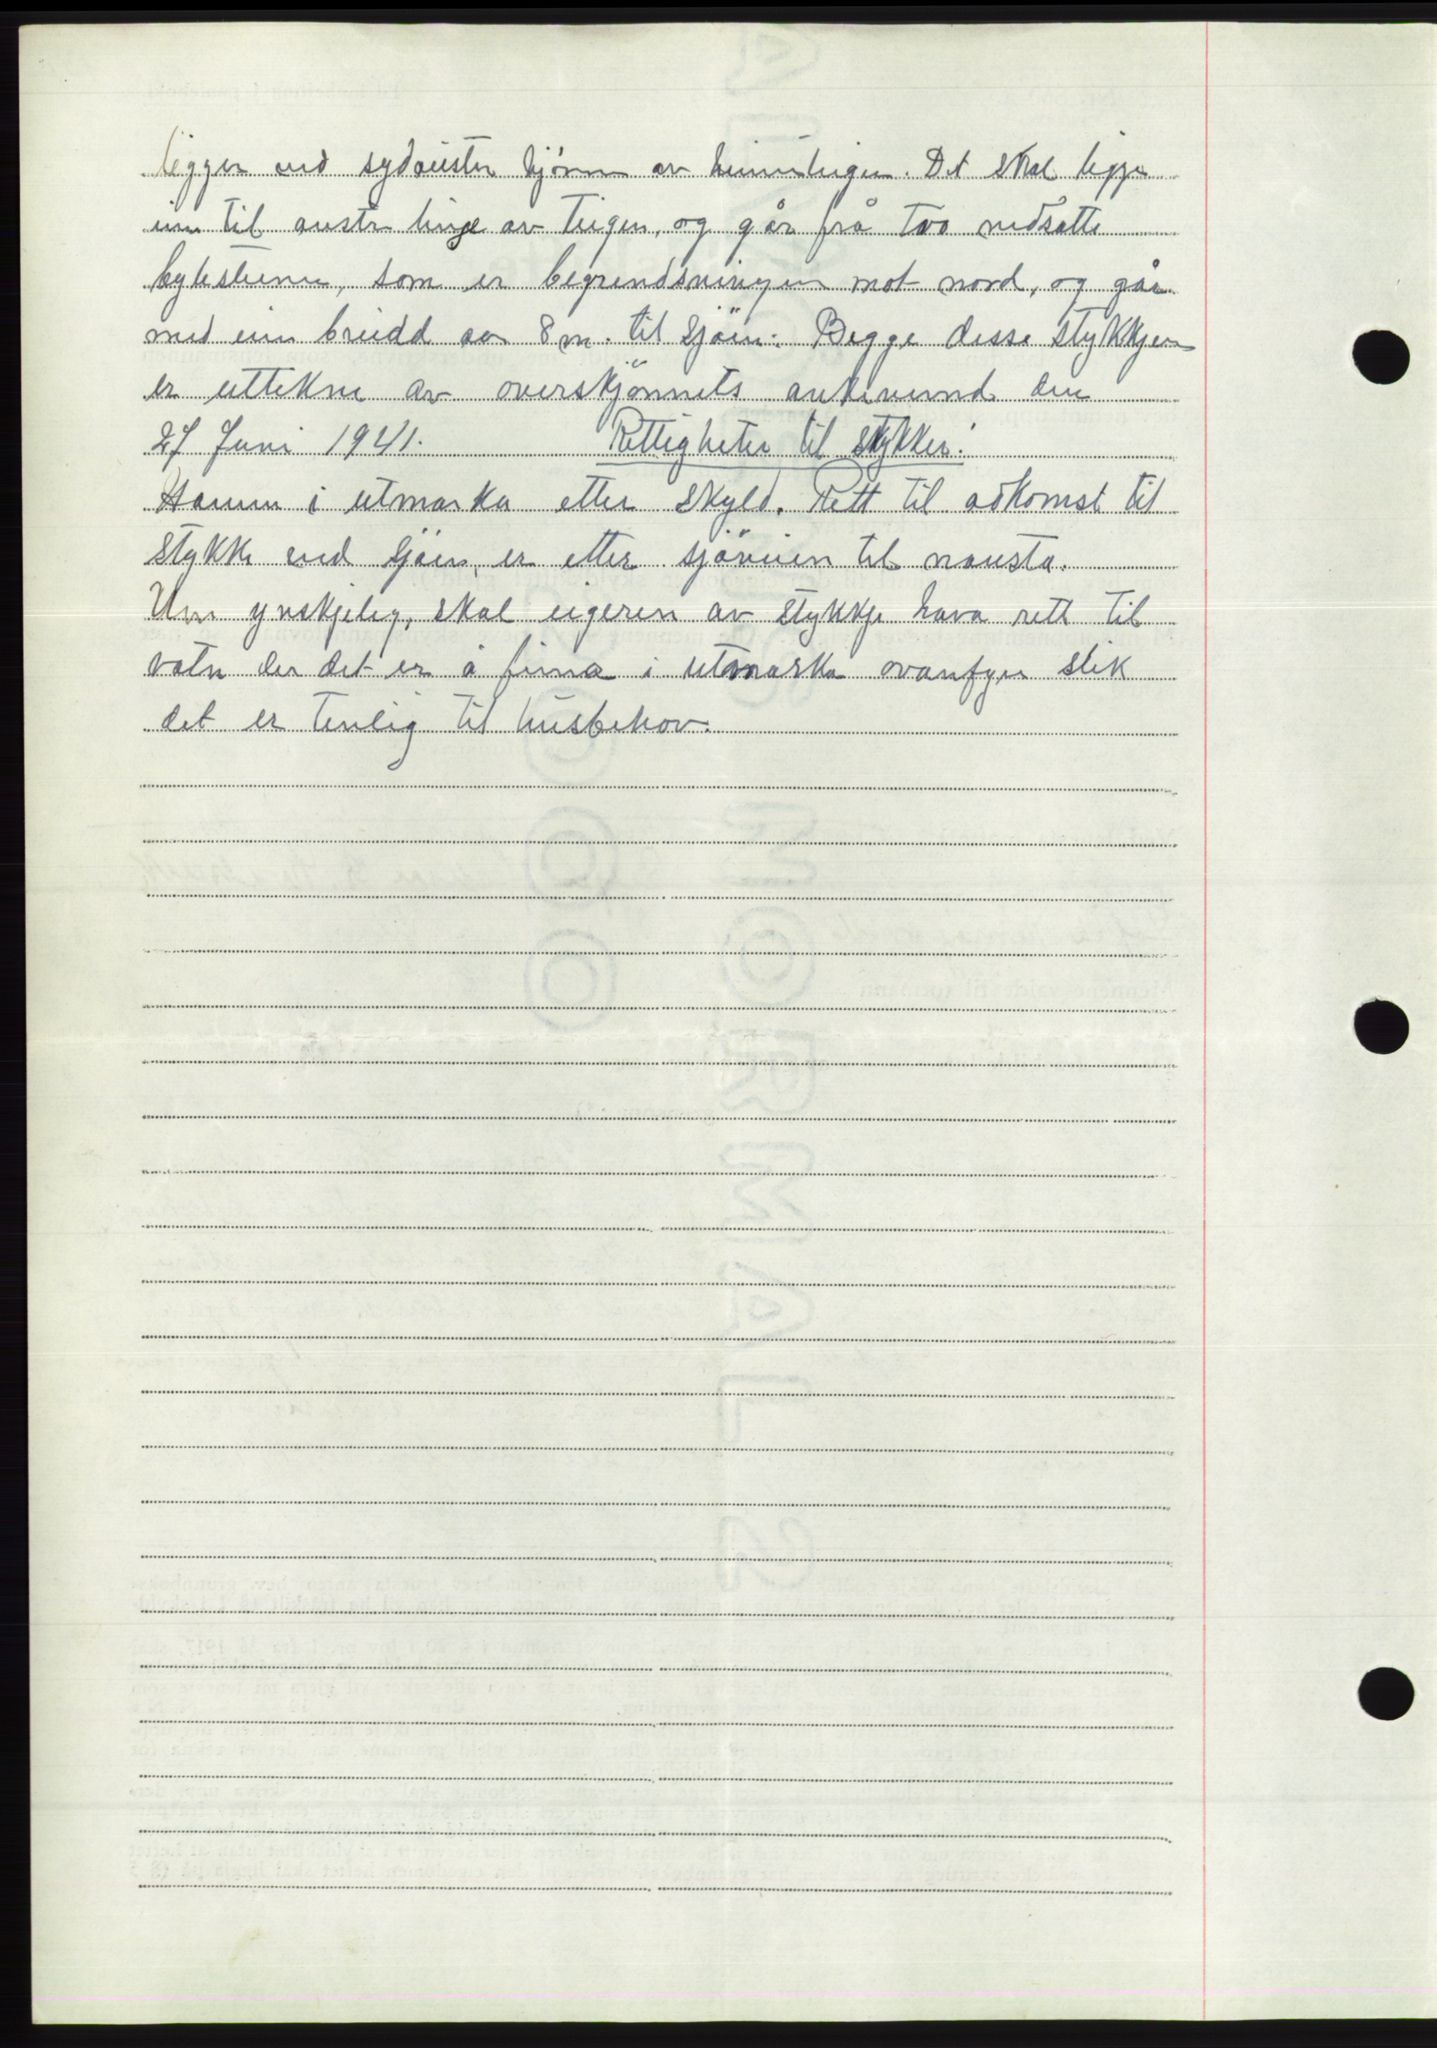 ligger ved sydauster hjørne av heimeteigen. Det skal ligge
inn til austre linje av Teigen, og går frå tvo nedsatte
bytesteine, som er begrendsningen mot nord, og går
med ein breidd av 8 m. til sjøen. Begge disse stykkjen
er uttekne av overskjønnets ankenemnd den
27 Juni 1941. Rettigheter til stykker.
Hamn i utmarka etter skyld. Rett til adkomst til
stykke ved sjøen, er etter sjøveien til nausta.
Um ynskjeleg, skal eigeren av stykkje hava rett til
vatn der det er å finna i utmarka ovanfyer slik
det er tenleg til husbehov.